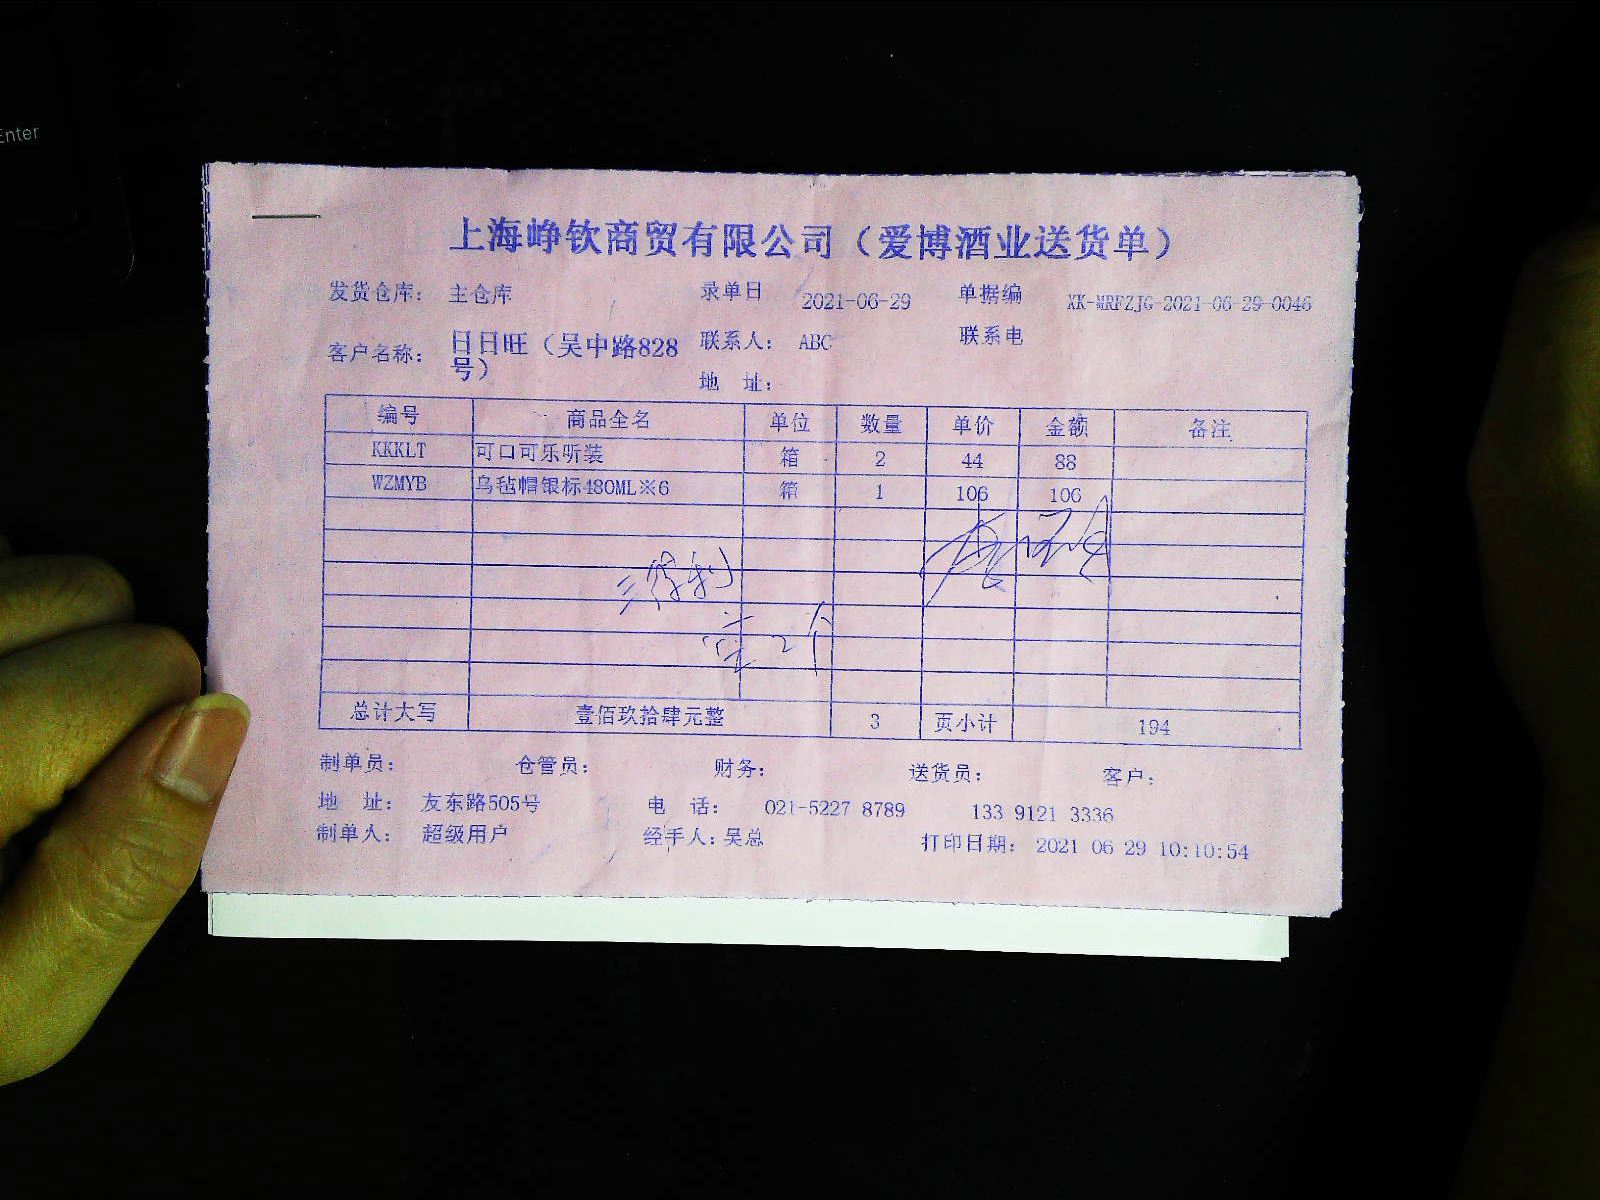 Enter
上海峥钦商贸有限公司（爱博酒业送货单）
发货仓库： 主仓库 录单日 2021-06-29 单据编 XK-MRFZJG-2021-06-29-0046
客户名称： 日日旺（吴中路828号） 联系人： ABC 联系电
地 址：
编号 商品全名 单位 数量 单价 金额 备注
KKKLT 可口可乐听装 箱 2 44 88
WZMYB 乌毡帽银标480ML※6 箱 1 106 106
三得利
空2个
总计大写 壹佰玖拾肆元整 3 页小计 194
制单员： 仓管员： 财务： 送货员： 客户：
地 址： 友东路505号 电 话： 021-5227 8789 133 9121 3336
制单人： 超级用户 经手人：吴总 打印日期： 2021 06 29 10:10:54